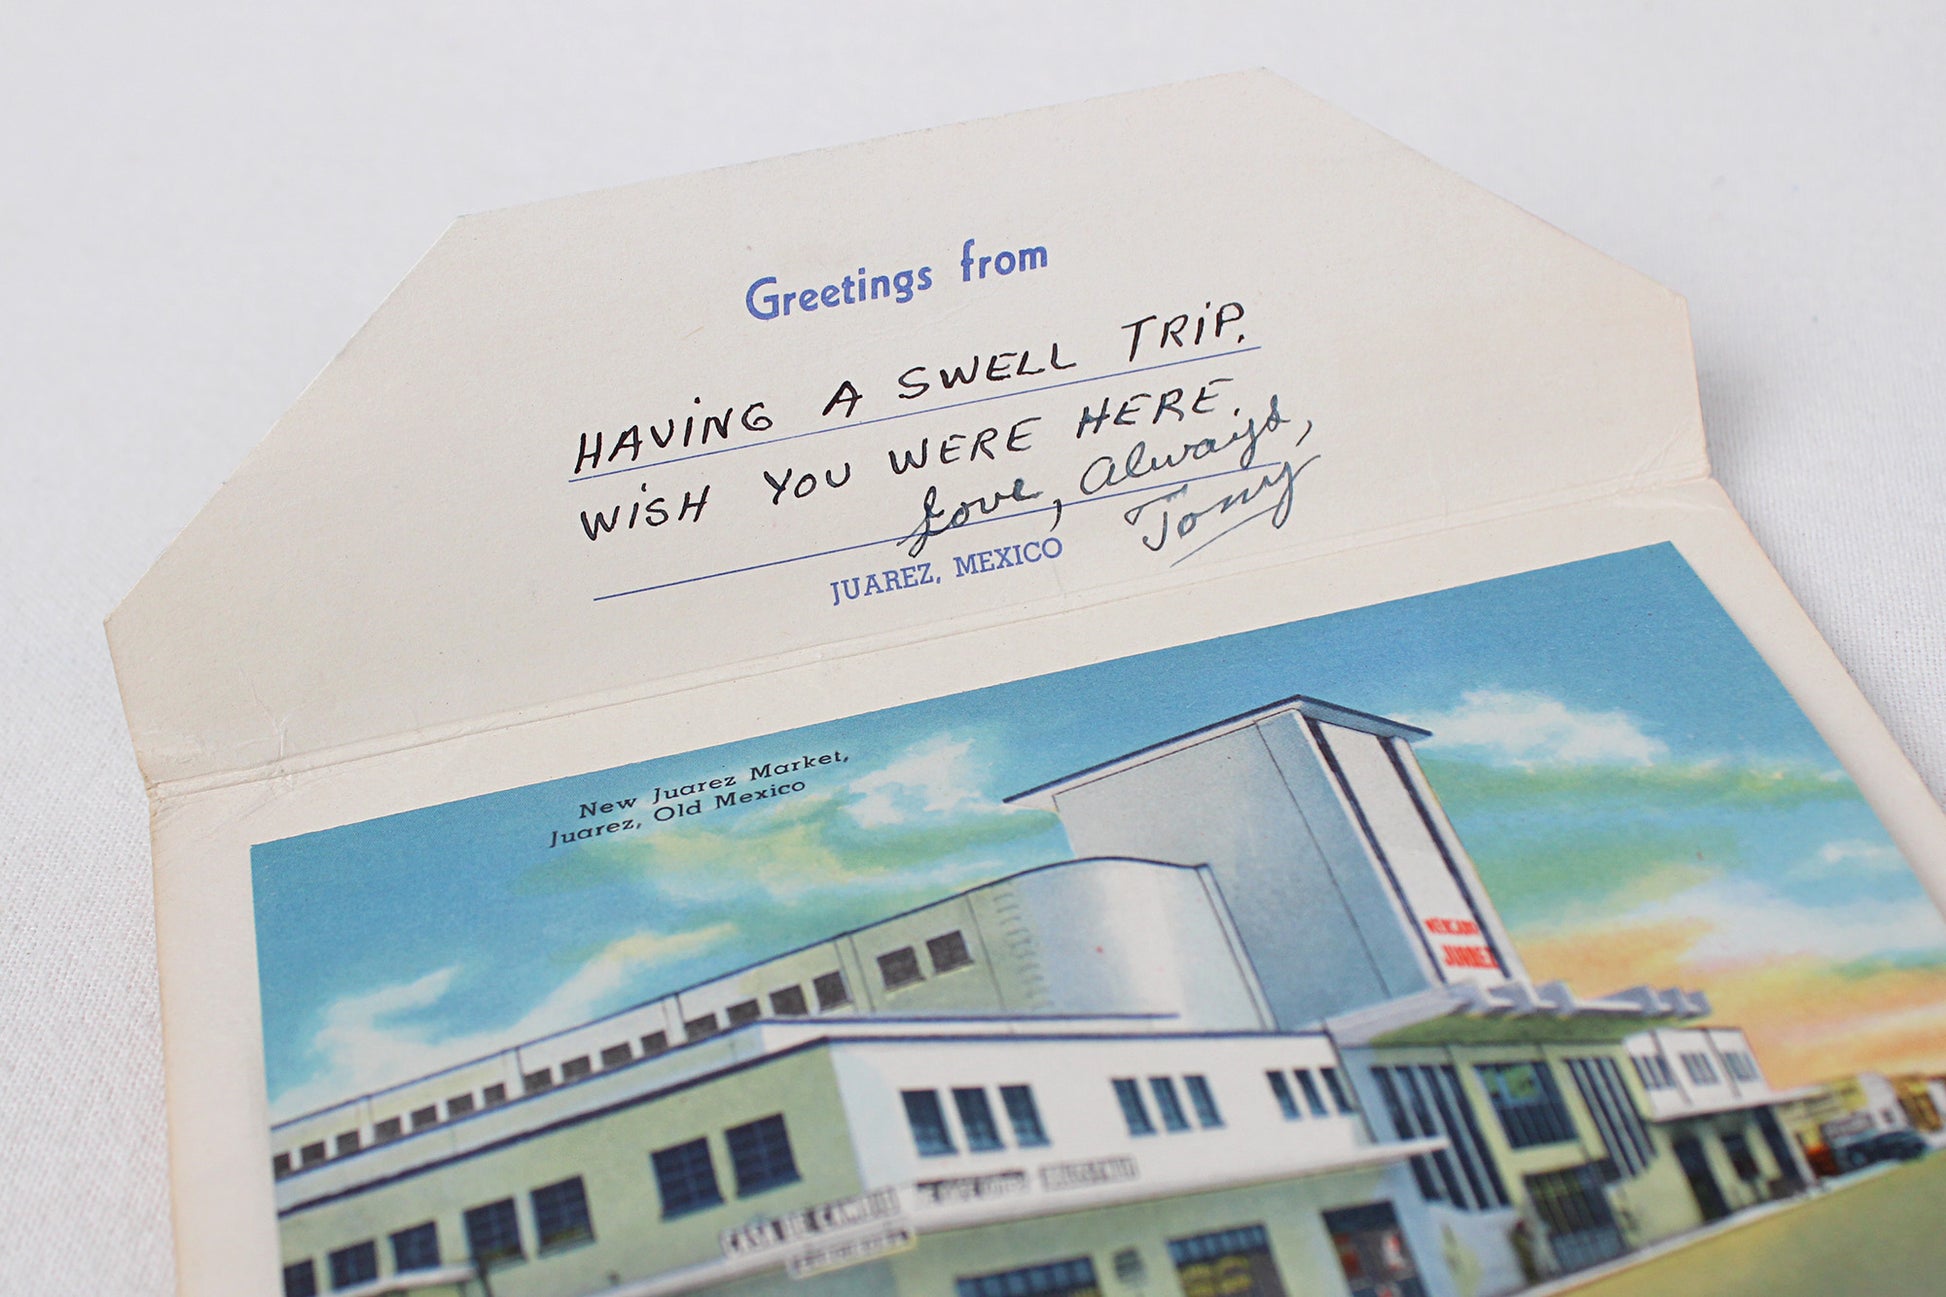 Greetings from
HAViNG A SWELL TRiP.
WiSH YOU WERE HERE.
Love, Always,
Tony
JUAREZ, MEXICO
New Juarez Market,
Juarez, Old Mexico
MERCADO
JUAREZ
CASA DE CAMBIO